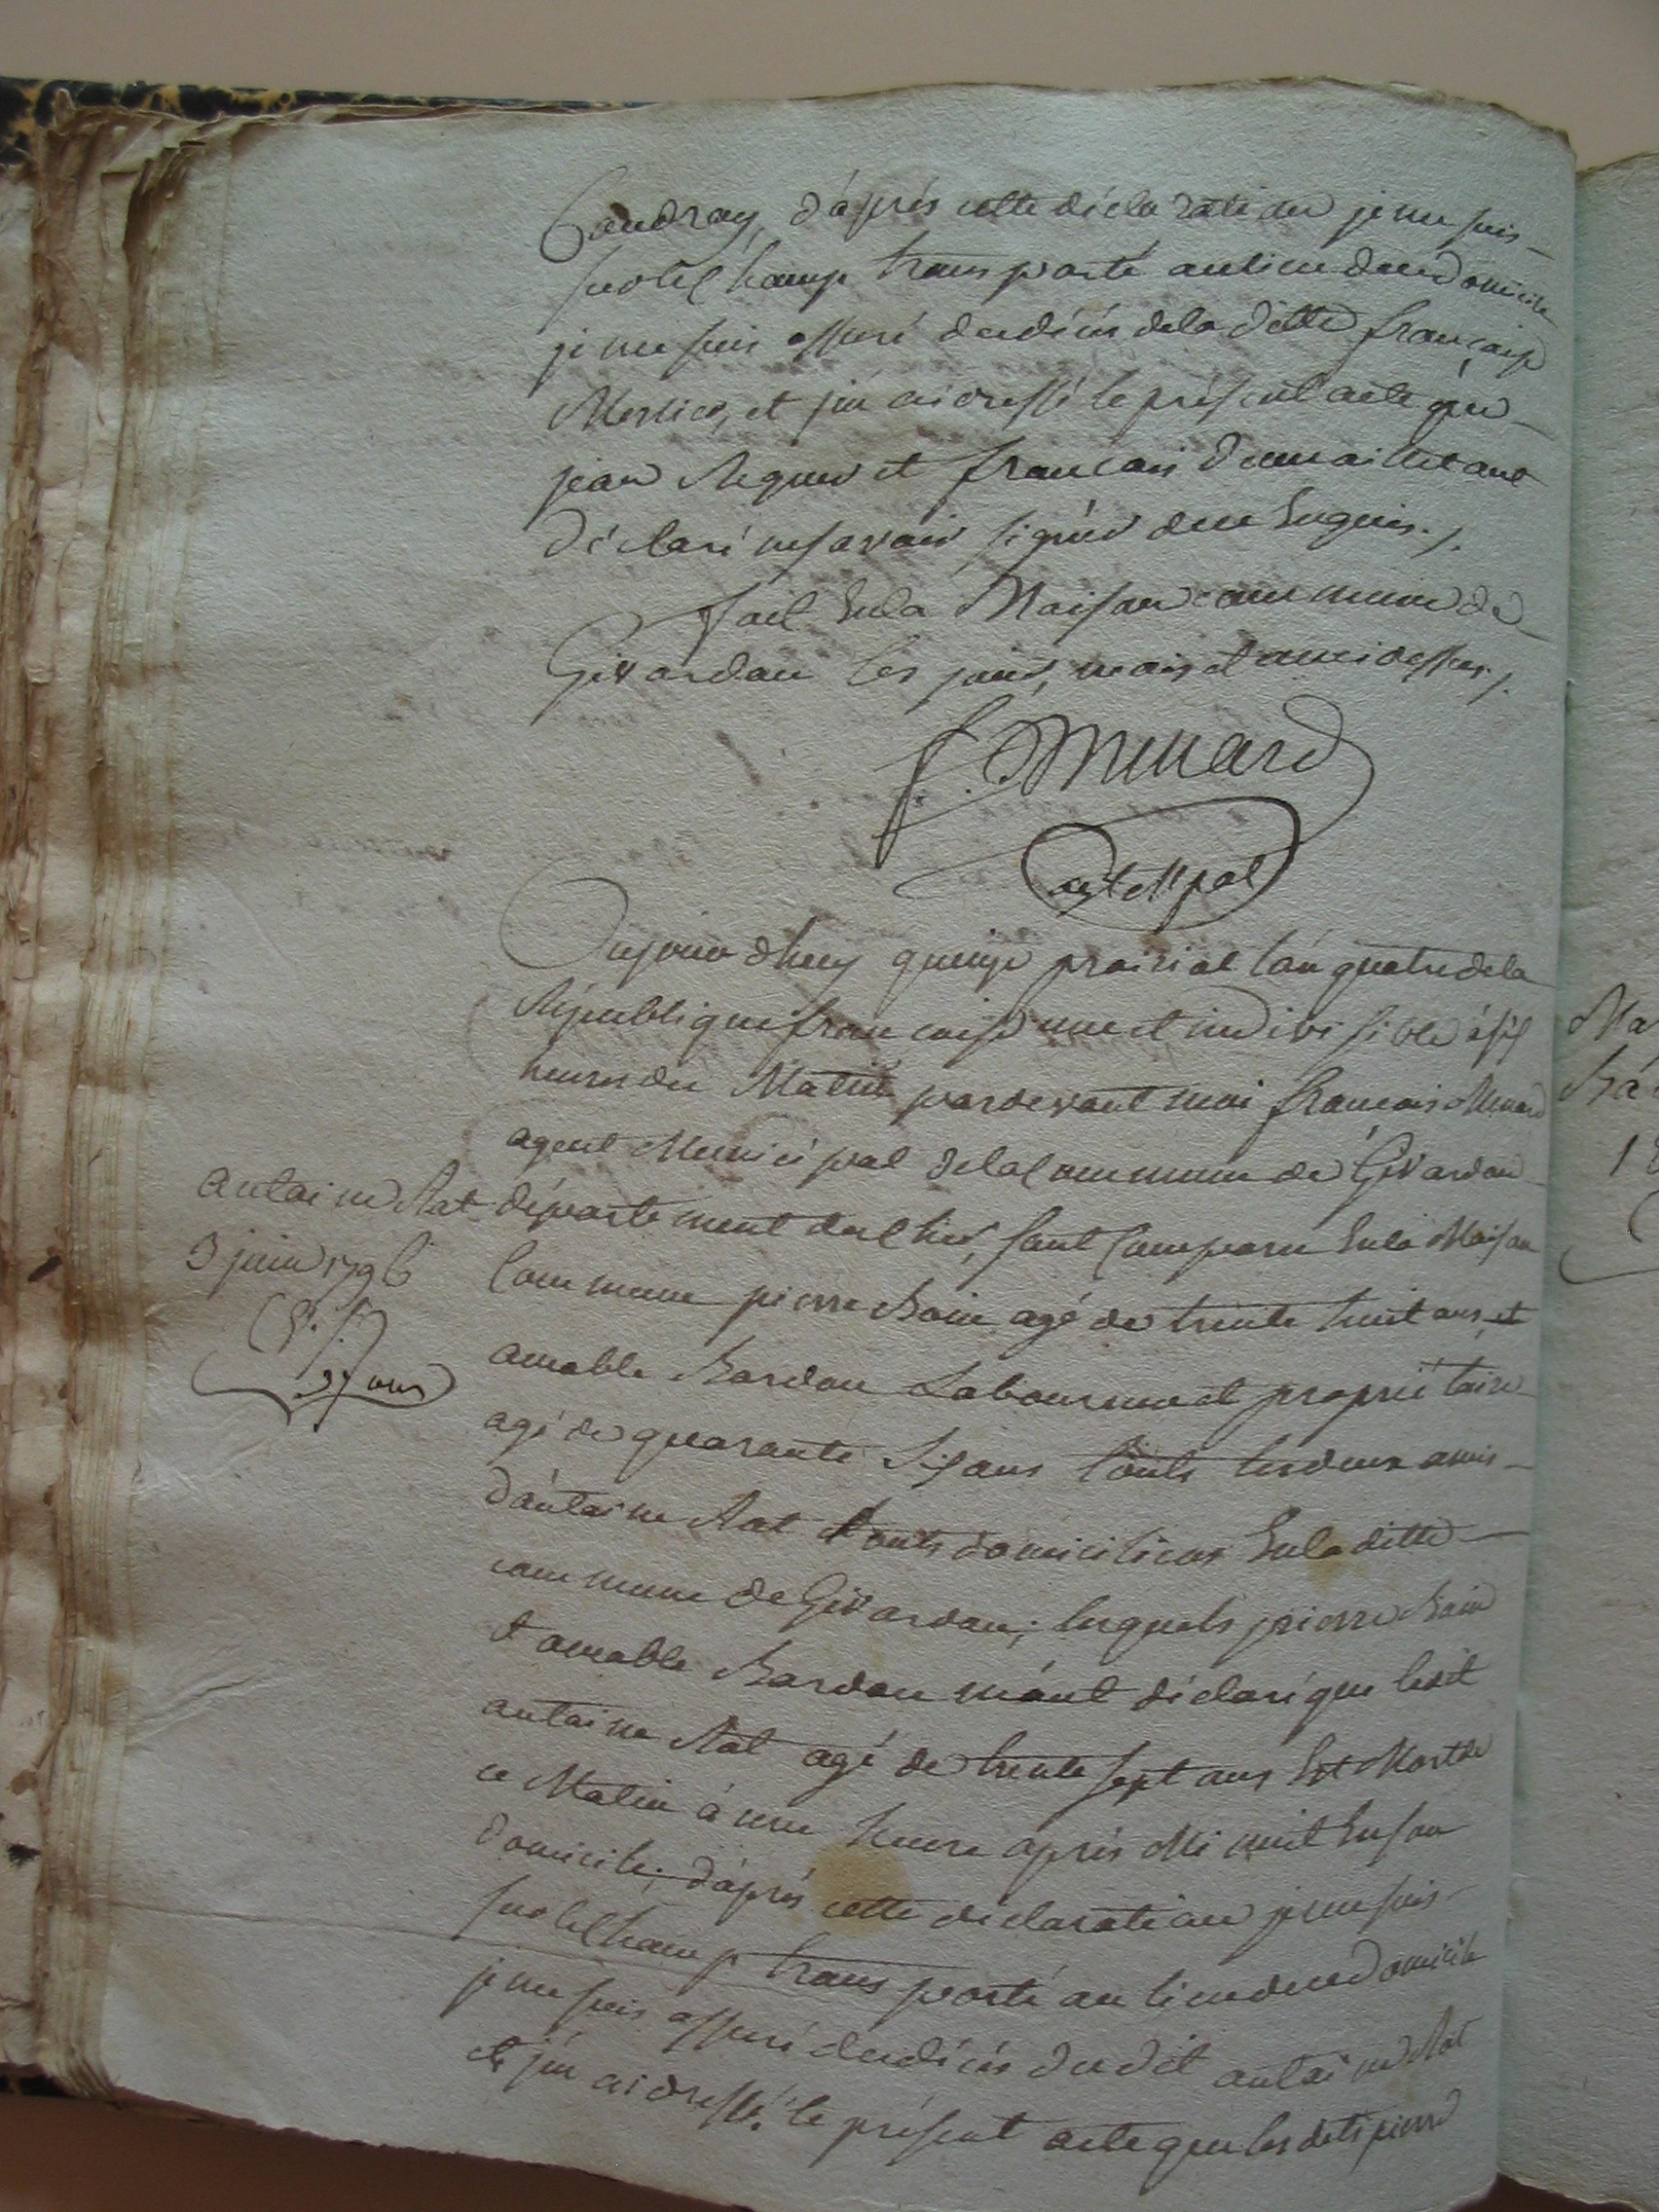 Coudray, d'áprés cette déclaration je me suis
surlechamp transporté au lieu deced omicile
je me suis assuré du décés de la ditte françaisse
Mercier, et j'en ai dressé le présent acte que
jean et francais ont
déclaré ne savoir signer de ce Enquis ./.
fait En la Maison commune de
Givardon les jour, mois et an ci dessus ./.
f. Menard
agt Mpal
Aujourdhuy quinze prairial l'an quatre de la
République francaisse une et indivisible à six
heures du Matin pardevant moi francais Menard
agent Municipal de la Commune de Givardon
antoine Rat
3 juin 1796
37 ans
département du Cher, sont Comparu En la Maison
Commune pierre Boin agé de trente huit ans et
amable Bardon Laboureur et propriétaire
agé de quarante Six ans touts les deux amis
d'antoine Rat touts domiciliers En la ditte
commune de Givardon; lesquels pierre Boin
et amable Bardon m'ont déclaré que ledit
antoine Rat agé de trente sept ans Est Mort de
ce Matin à une heure aprés Minuit En son
domicile, d'áprés cette déclaration je me suis
surlechamp transporté au lieu de ce domicile
je me suis assuré du décés du dit antoine Rat
et j'en ai dressé le présent acte que les dits pierre
Ma
Ba
1